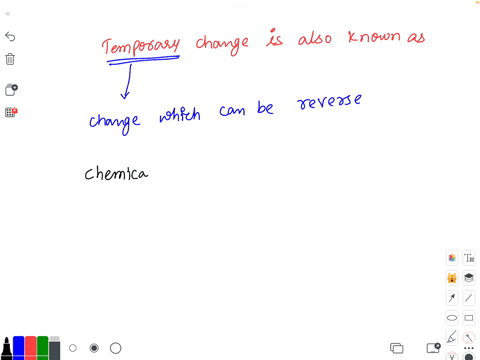 Temporary change is also known as
change which can be reverse
chemica